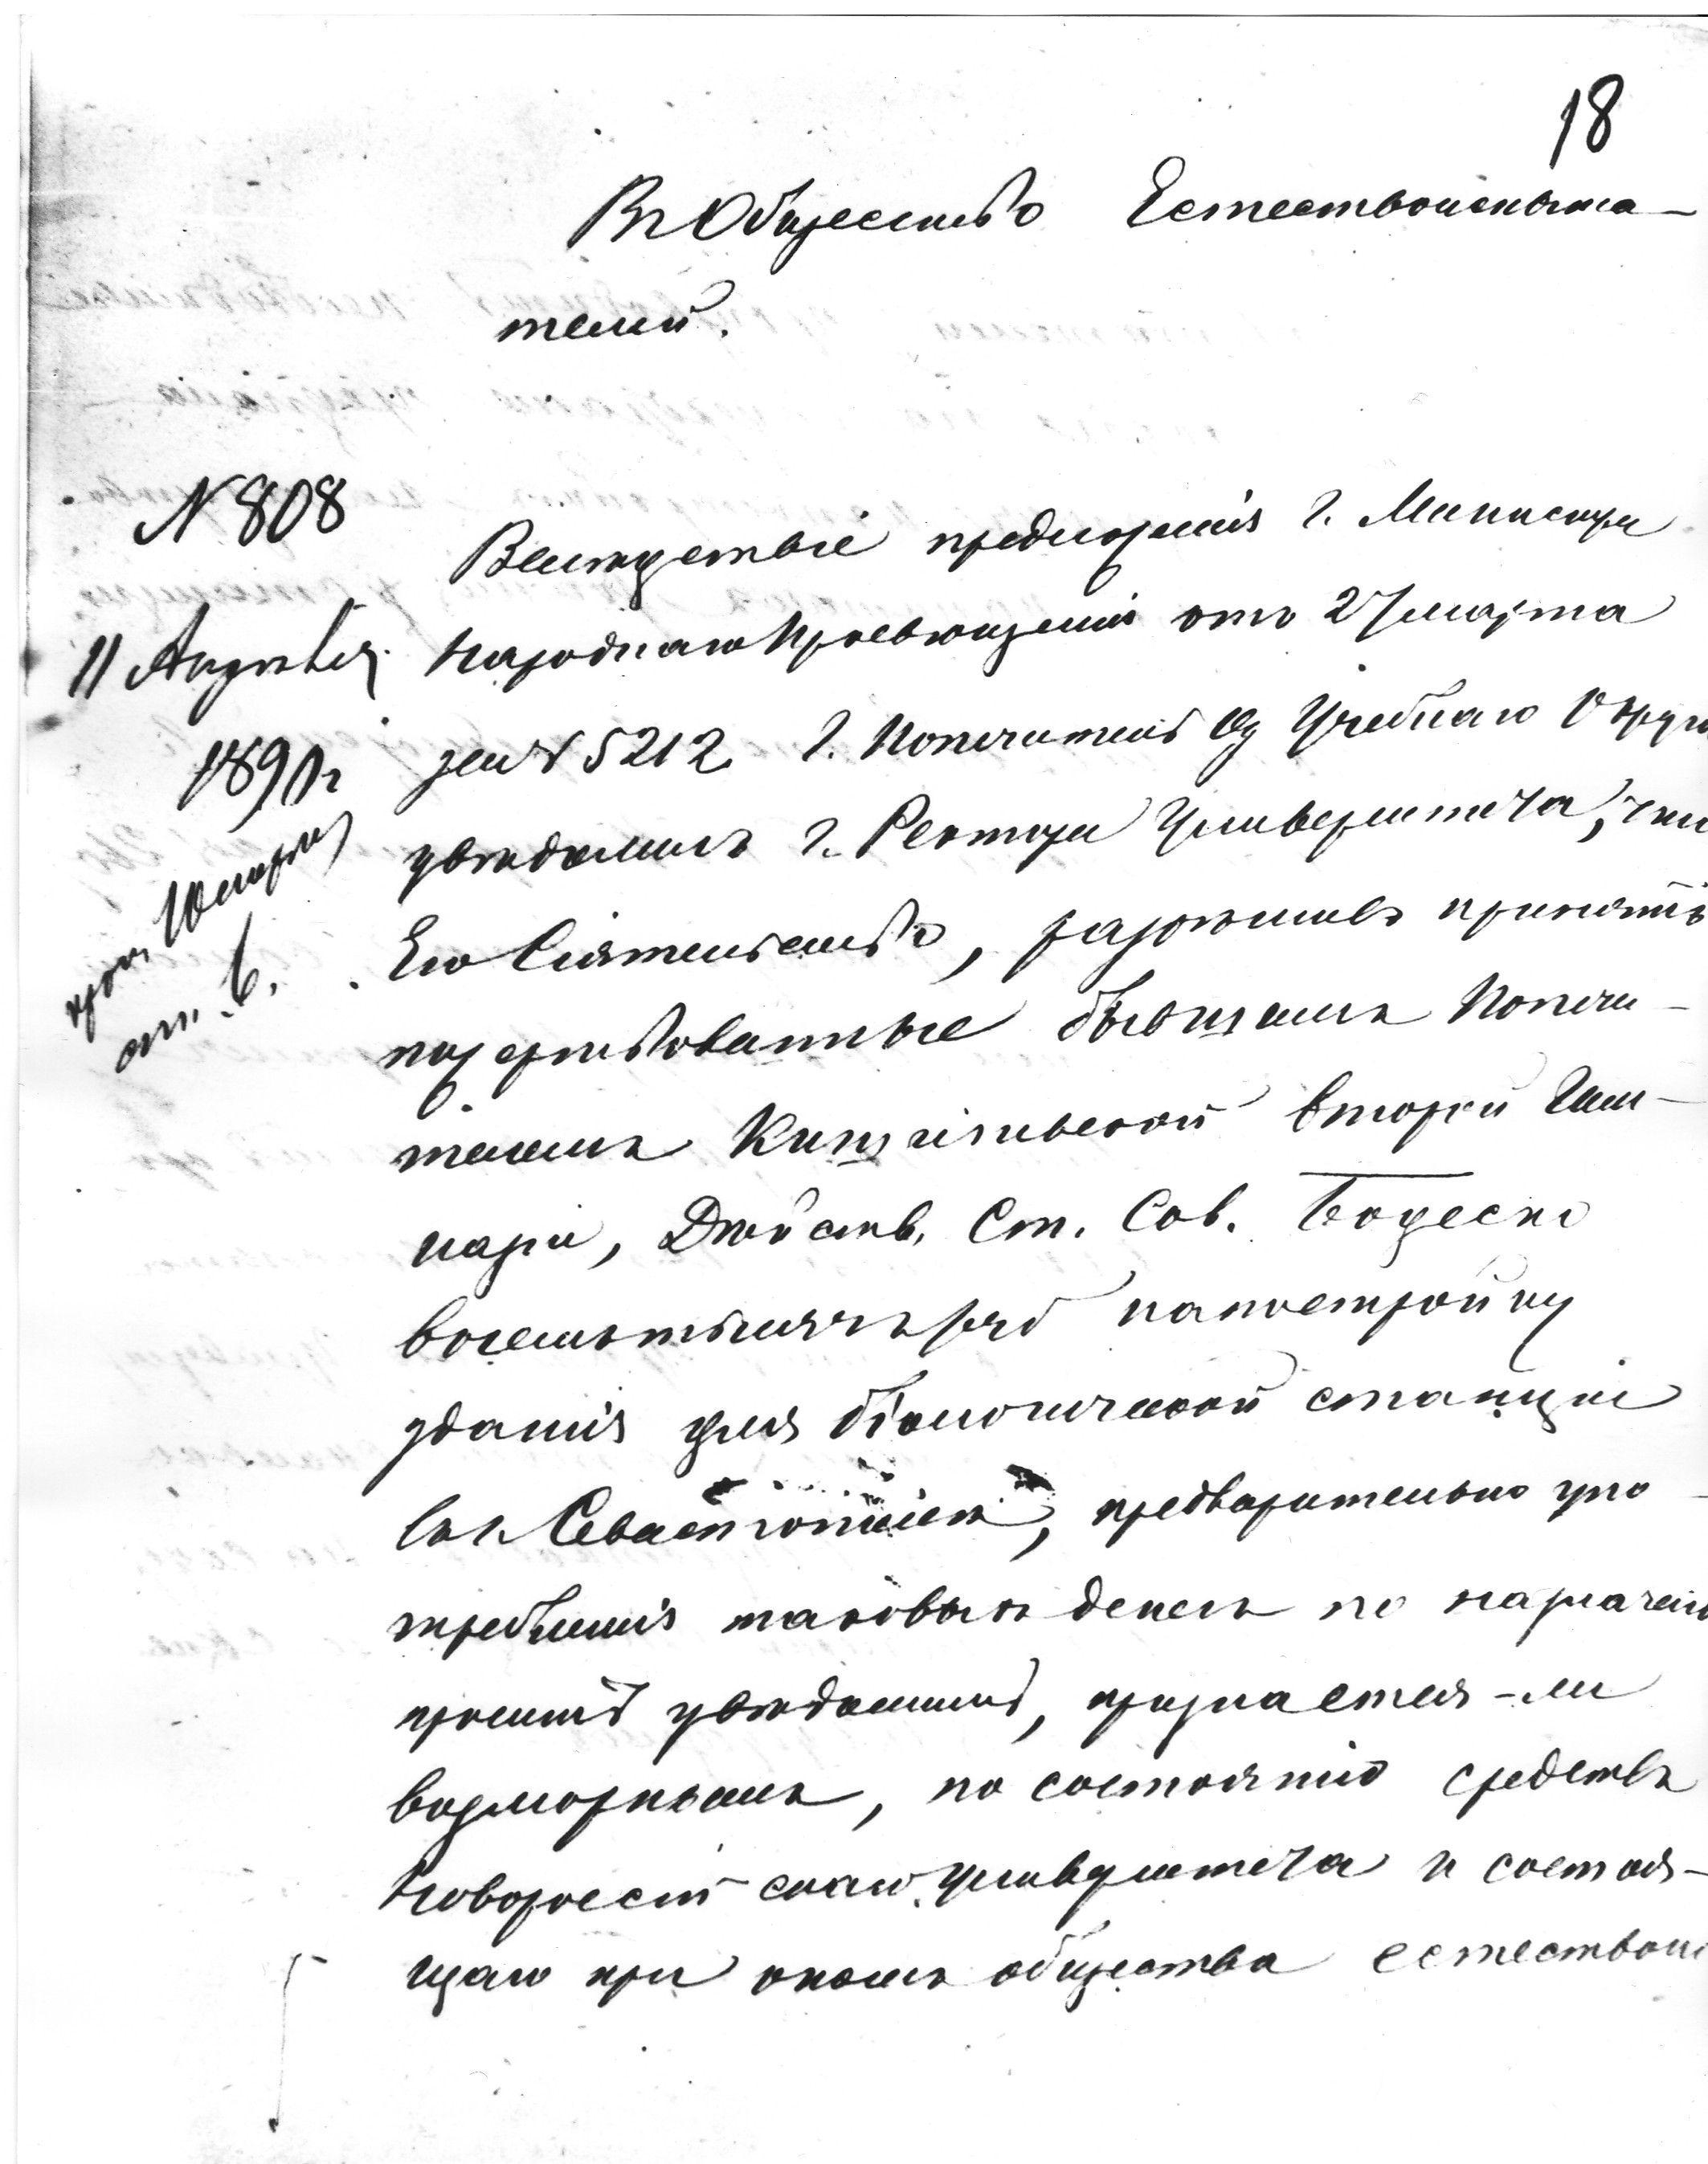 18
Въ Общество Естествоиспыта-
телей.
N 808
11 Апреля
1890 г
прот.
ст. 6.
Вследствіе предложенія г. Министра
Народнаго Просвѣщенія отъ 27 марта
за N 5212 г. Попечитель Од Учебнаго Округа
увѣдомилъ г. Ректора Университета, что
Его Сіятельство, разрѣшивъ принять
пожертвованные бывшимъ Попечи-
телемъ Кишиневской второй Гим-
назіи, Дѣйств. Ст. Сов. Бодеско
восемь тысячъ руб на постройку
зданія для біологической станціи
въ г. Севастополѣ, предварительно упо-
требленія таковыхъ денегъ по назначенію
проситъ увѣдомить, признается-ли
возможнымъ, по состоянію средствъ
Новороссійскаго Университета и состоя-
щаго при ономъ общества естествоис